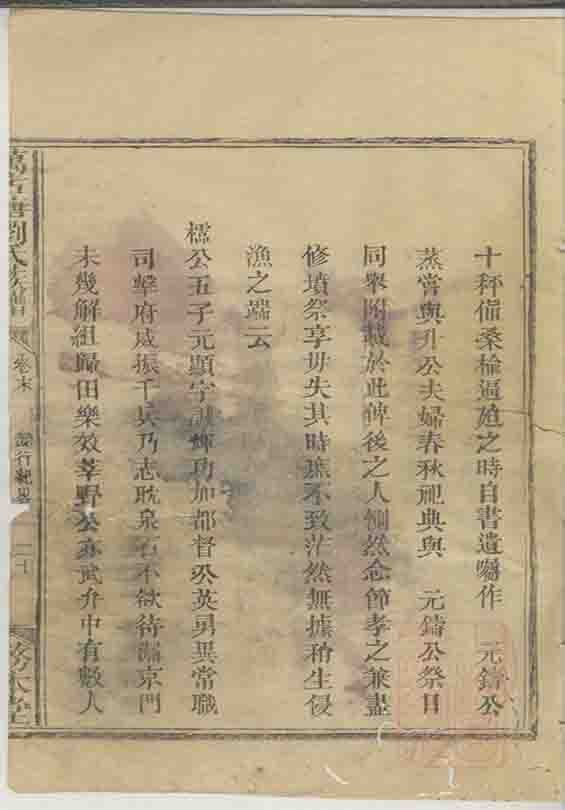 十秤備桑榆逼殖之時自書遺囑作 元鑄公
蒸嘗與升公夫婦春秋祀典與 元鑄公祭日
同舉附載於此俾後之人惻然念節孝之兼盡
修墳祭享毋失其時庶不致茫然無據稍生侵
漁之端云
公五子元顯字誠輝功加都督公英勇異常職
司擊府威振千兵乃志耽泉石不欲待漏京門
未幾解組歸田樂效莘野公亦武弁中有數人
劉氏族譜 卷末 行紀畧 二十 敦本堂